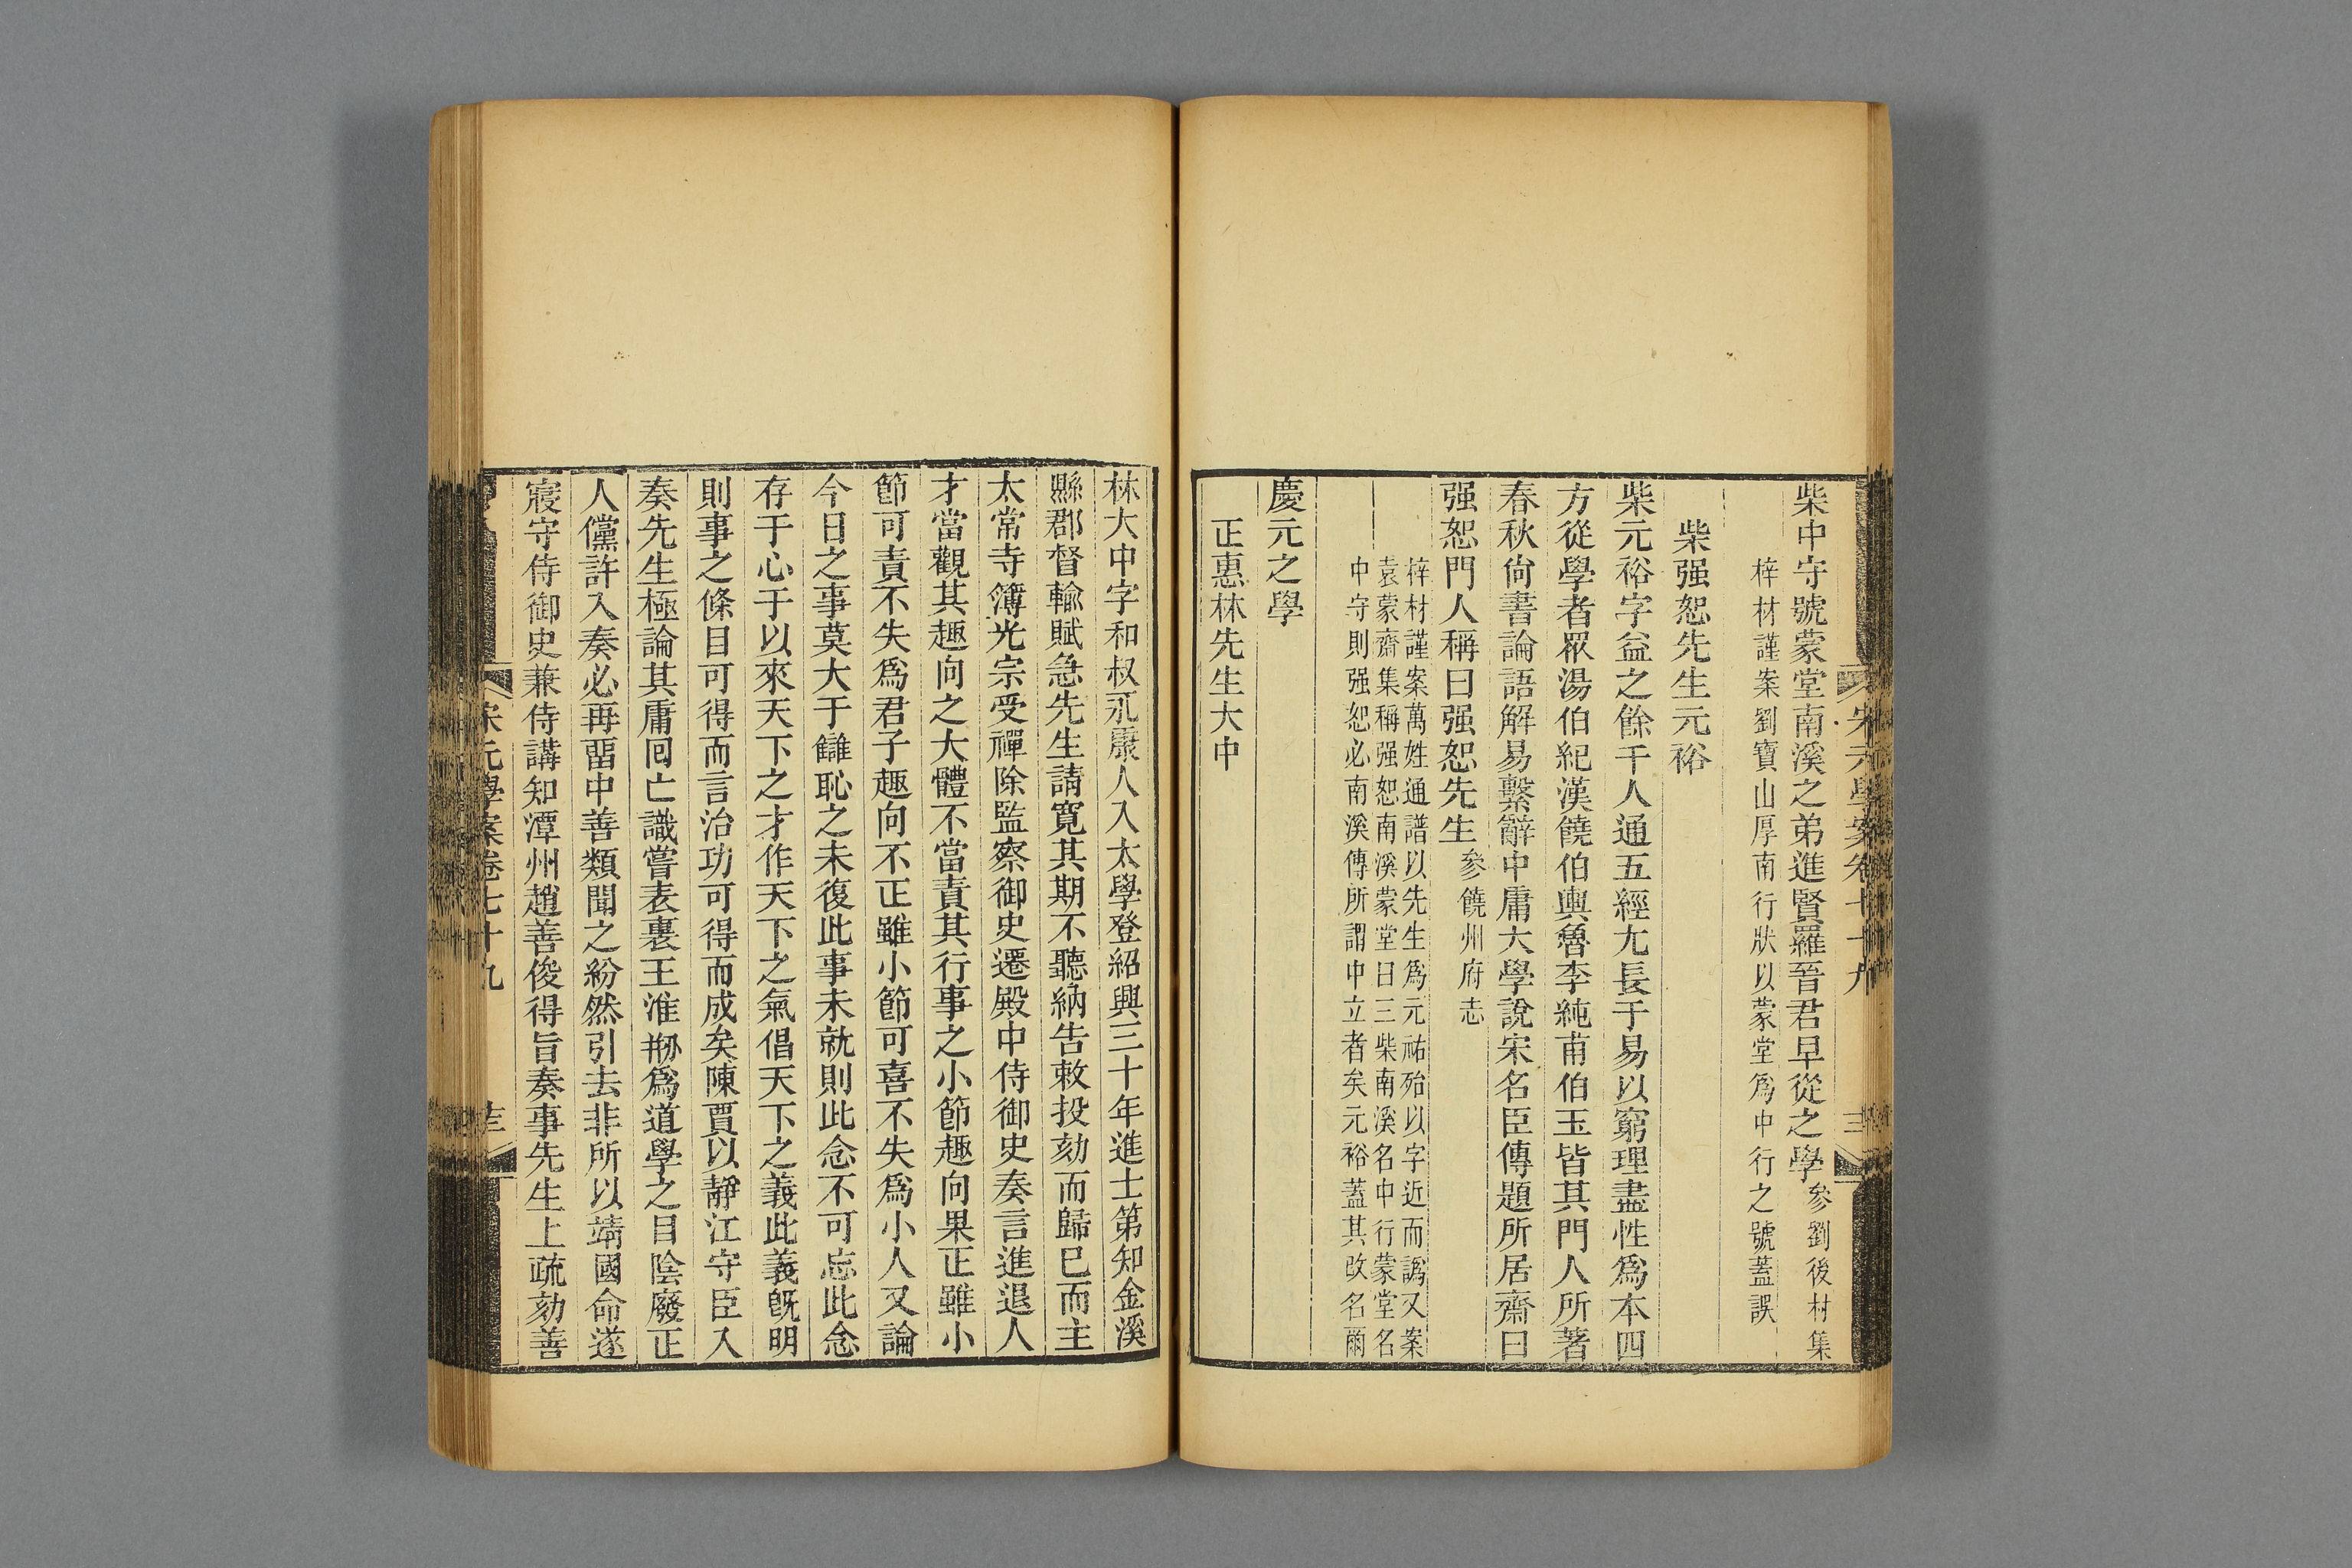 柴中守號蒙堂南溪之弟進賢羅晉君早從之學參劉後村集
梓材謹案劉寶山厚南行狀以蒙堂爲中行之號蓋誤
柴强恕先生元裕
柴元裕字益之餘干人通五經尢長于易以窮理盡性爲本四
方從學者眾湯伯紀漢饒伯輿魯李純甫伯玉皆其門人所著
春秋尙書論語解易繫辭中庸大學說宋名臣傳題所居齋曰
强恕門人稱曰强恕先生參饒州府志
梓材謹案萬姓通譜以先生爲元祐殆以字近而譌又案
袁蒙齋集稱强恕南溪蒙堂曰三柴南溪名中行蒙堂名
中守則强恕必南溪傳所謂中立者矣元裕蓋其改名爾
慶元之學
正惠林先生大中
宋元學案卷七十九
林大中字和叔永康人入太學登紹興三十年進士第知金溪
縣郡督輸賦急先生請寬其期不聽納告敕投劾而歸已而主
太常寺簿光宗受禪除監察御史遷殿中侍御史奏言進退人
才當觀其趣向之大體不當責其行事之小節趣向果正雖小
節可責不失爲君子趣向不正雖小節可喜不失爲小人又論
今日之事莫大于讎恥之未復此事未就則此念不可忘此念
存于心于以來天下之才作天下之氣倡天下之義此義旣明
則事之條目可得而言治功可得而成矣陳賈以靜江守臣入
奏先生極論其庸回亡識嘗表裏王淮剙爲道學之目陰廢正
人儻許入奏必再畱中善類聞之紛然引去非所以靖國命遂
寢守侍御史兼侍講知潭州趙善俊得旨奏事先生上疏劾善
宋元學案卷七十九